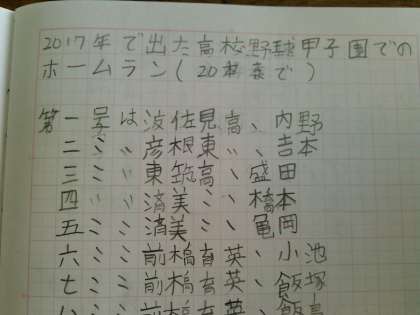 2017年で出た高校野球甲子園での
ホームラン(20本まで)
第一号は波佐見高、内野
二〃〃彦根東〃、吉本
三〃〃東筑高、盛田
四〃〃済美〃、橋本
五〃〃済美〃、亀岡
六〃〃前橋育英、小池
七〃〃前橋育英、飯塚
八〃〃前橋育英、飯島